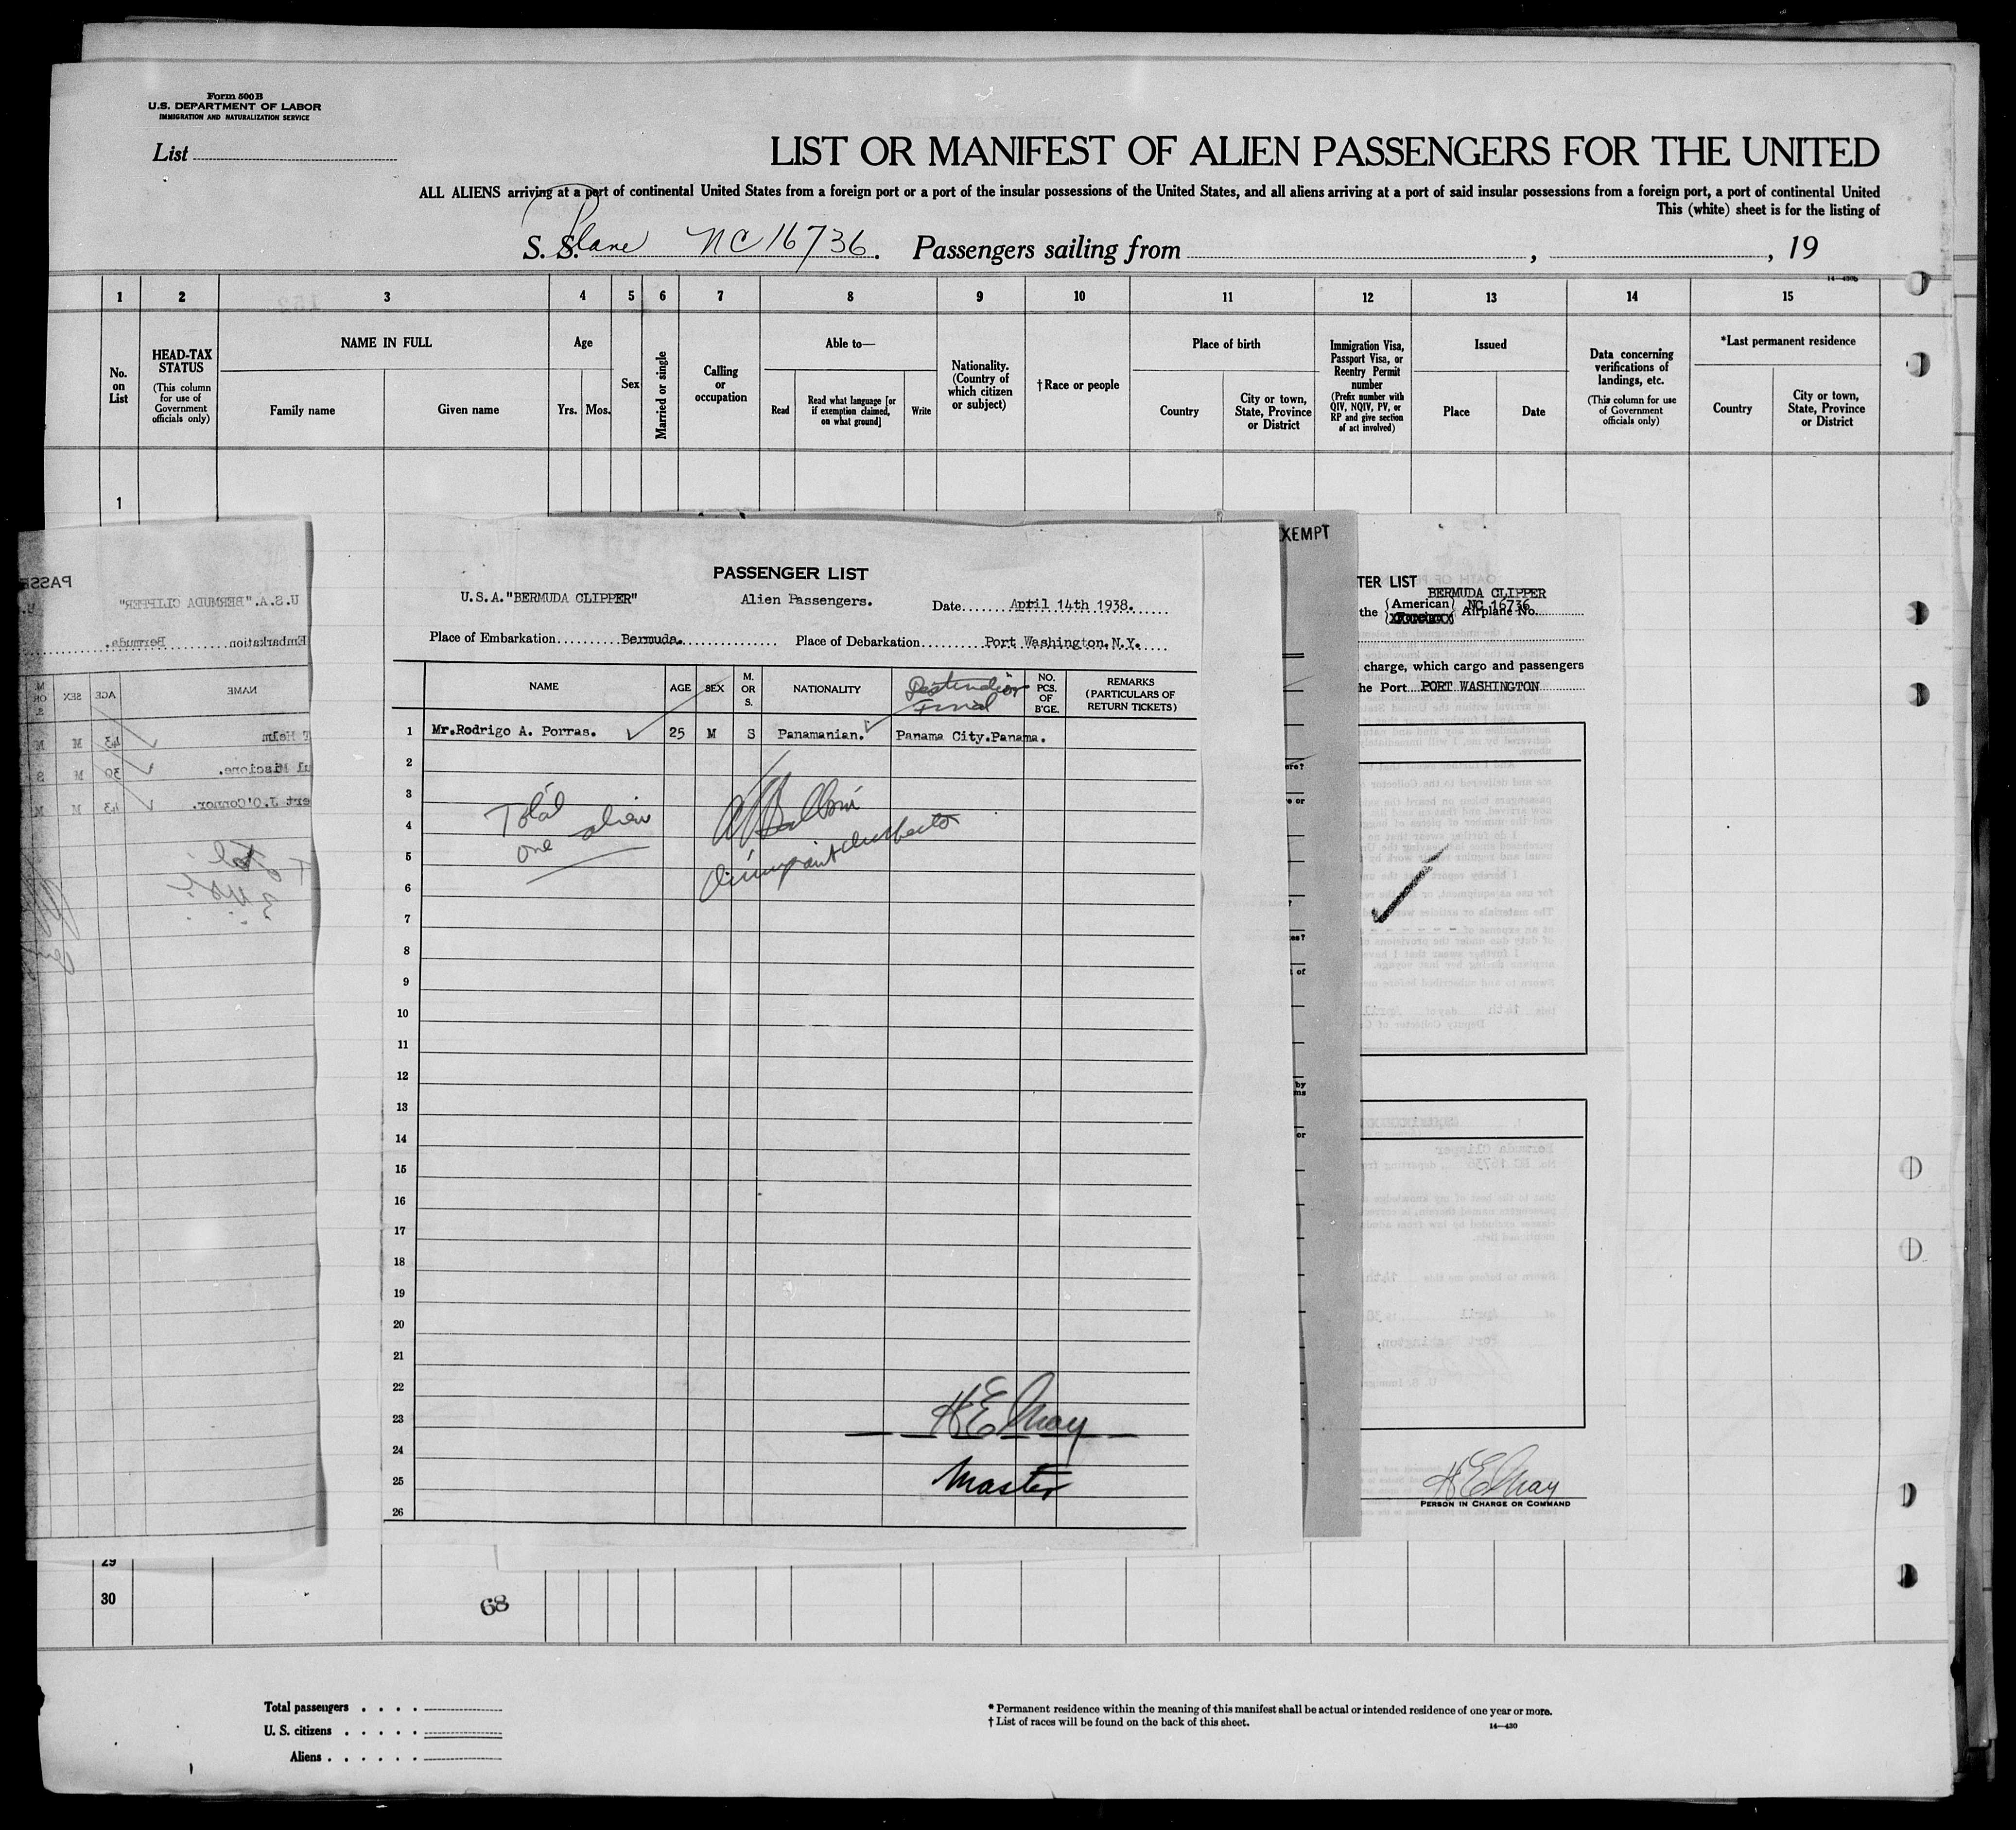 Form 500 B
U.S. DEPARTMENT OF LABOR
IMMIGRATION AND NATURALIZATION SERVICE
List
LIST OR MANIFEST OF ALIEN PASSENGERS FOR THE UNITED
ALL ALIENS arriving at a port of continental United States from a foreign port or a port of the insular possessions of the United States, and all aliens arriving at a port of said insular possessions from a foreign port, a port of continental United
This (white) sheet is for the listing of
S. S. Plane NC 16736. Passengers sailing from , , 19
14—430b
1 2 3 4 5 6 7 8 9 10 11 12 13 14 15
No. on List
HEAD-TAX STATUS
(This column for use of Government officials only)
NAME IN FULL
Family name
Given name
Age
Yrs.
Mos.
Sex
Married or single
Calling or occupation
Able to—
Read
Read what language [or if exemption claimed, on what ground]
Write
Nationality. (Country of which citizen or subject)
†Race or people
Place of birth
Country
City or town, State, Province or District
Immigration Visa, Passport Visa, or Reentry Permit number
(Prefix number with QIV, NQIV, PV, or RP and give section of act involved)
Issued
Place
Date
Data concerning verifications of landings, etc.
(This column for use of Government officials only)
*Last permanent residence
Country
City or town, State, Province or District
1
PASSE
U.S.A."BERMUDA CLIPPER"
Embarkation Bermuda.
NAME AGE SEX M. OR S.
Helm 43 M M
ul Miscione. 39 M S
ert J.O'Connor. 43 M M
PASSENGER LIST
U.S.A."BERMUDA CLIPPER" Alien Passengers. Date April 14th 1938.
Place of Embarkation Bermuda. Place of Debarkation Port Washington,N.Y.
NAME AGE SEX M. OR S. NATIONALITY Destination Final NO. PCS. OF B'GE. REMARKS (PARTICULARS OF RETURN TICKETS)
1 Mr.Rodrigo A. Porras. 25 M S Panamanian. Panama City.Panama.
2
3
4
5
6
7
8
9
10
11
12
13
14
15
16
17
18
19
20
21
22
23
24
25
26
Total
one alien
H E Gray
Master
XEMPT
TER LIST
BERMUDA CLIPPER
the American Airplane No. NC 16736
charge, which cargo and passengers
he Port PORT WASHINGTON
H E Gray
PERSON IN CHARGE OR COMMAND
29
30
68
Total passengers
U. S. citizens
Aliens
* Permanent residence within the meaning of this manifest shall be actual or intended residence of one year or more.
† List of races will be found on the back of this sheet.
14—430